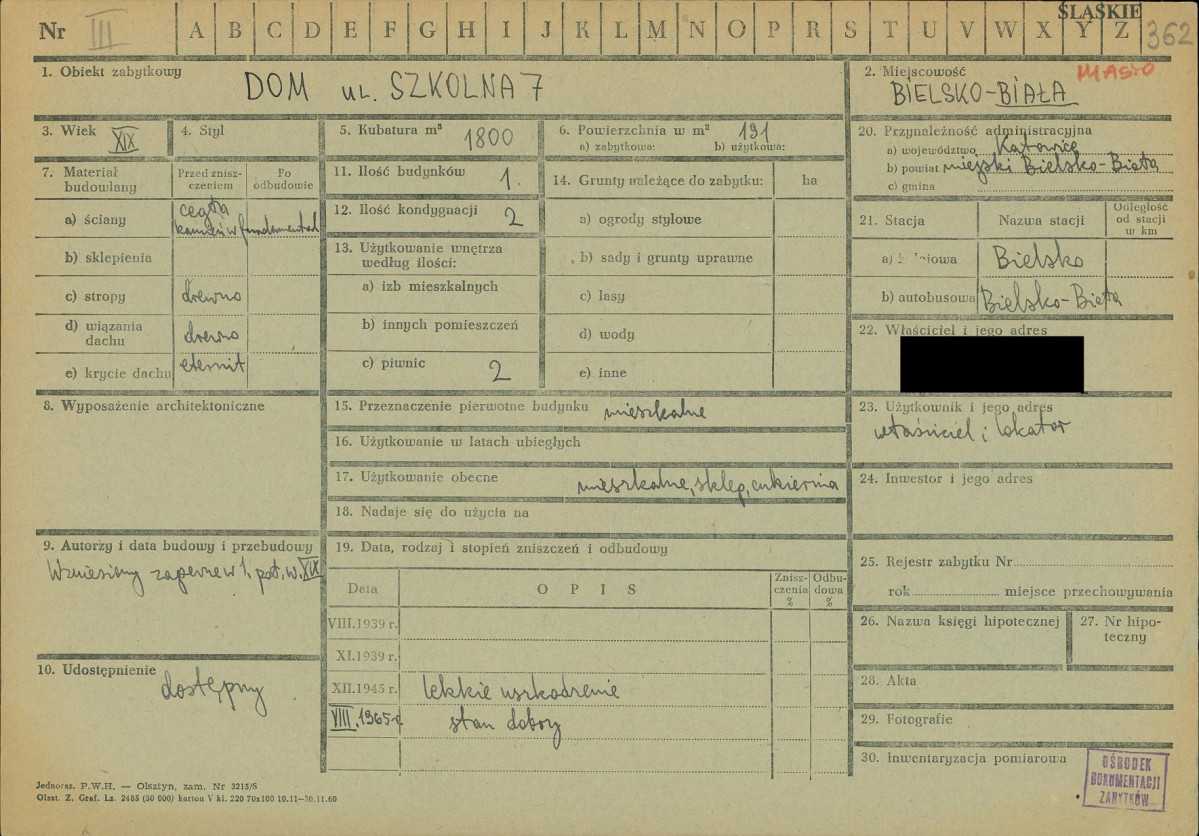 ŚLĄSKIE
Nr III A B C D E F G H I J K L M N O P R S T U V W X Y Z 362
1. Obiekt zabytkowy
DOM ul. SZKOLNA 7
2. Miejscowość MIASTO
BIELSKO-BIAŁA
3. Wiek XIX
4. Styl
5. Kubatura m³ 1800
6. Powierzchnia w m² 191
a) zabytkowa: b) użytkowa:
20. Przynależność administracyjna
a) województwo Katowice
b) powiat miejski Bielsko-Biała
c) gmina
7. Materiał budowlany
Przed zniszczeniem
Po odbudowie
a) ściany cegła
kamień w fundamentach
b) sklepienia
c) stropy drewno
d) wiązania dachu drewno
e) krycie dachu eternit
11. Ilość budynków 1.
12. Ilość kondygnacji 2
13. Użytkowanie wnętrza
według ilości:
a) izb mieszkalnych
b) innych pomieszczeń
c) piwnic 2
14. Grunty należące do zabytku: ha
a) ogrody stylowe
b) sady i grunty uprawne
c) lasy
d) wody
e) inne
21. Stacja
Nazwa stacji
Odległość od stacji w km
a) Bielsko
b) autobusowa Bielsko-Biała
22. Właściciel i jego adres
8. Wyposażenie architektoniczne
15. Przeznaczenie pierwotne budynku mieszkalne
16. Użytkowanie w latach ubiegłych
17. Użytkowanie obecne mieszkalne, sklep, cukiernia
18. Nadaje się do użycia na
23. Użytkownik i jego adres
właściciel i lokator
24. Inwestor i jego adres
9. Autorzy i data budowy i przebudowy
Wzniesiony zapewne w 1. poł. w. XIX
10. Udostępnienie
dostępny
19. Data, rodzaj i stopień zniszczeń i odbudowy
Data OPIS Zniszczenia % Odbudowa %
VIII.1939 r.
XI.1939 r.
XII.1945 r. lekkie uszkodzenie
VIII.1965 r. stan dobry
25. Rejestr zabytku Nr
rok miejsce przechowywania
26. Nazwa księgi hipotecznej
27. Nr hipoteczny
28. Akta
29. Fotografie
30. Inwentaryzacja pomiarowa
OŚRODEK
DOKUMENTACJI
ZABYTKÓW
Jednoraz. P.W.H. — Olsztyn, zam. Nr 3215/S
Olszt. Z. Graf. Lz. 2485 (30 000) karton V kl. 220 70x100 10.11—30.11.60